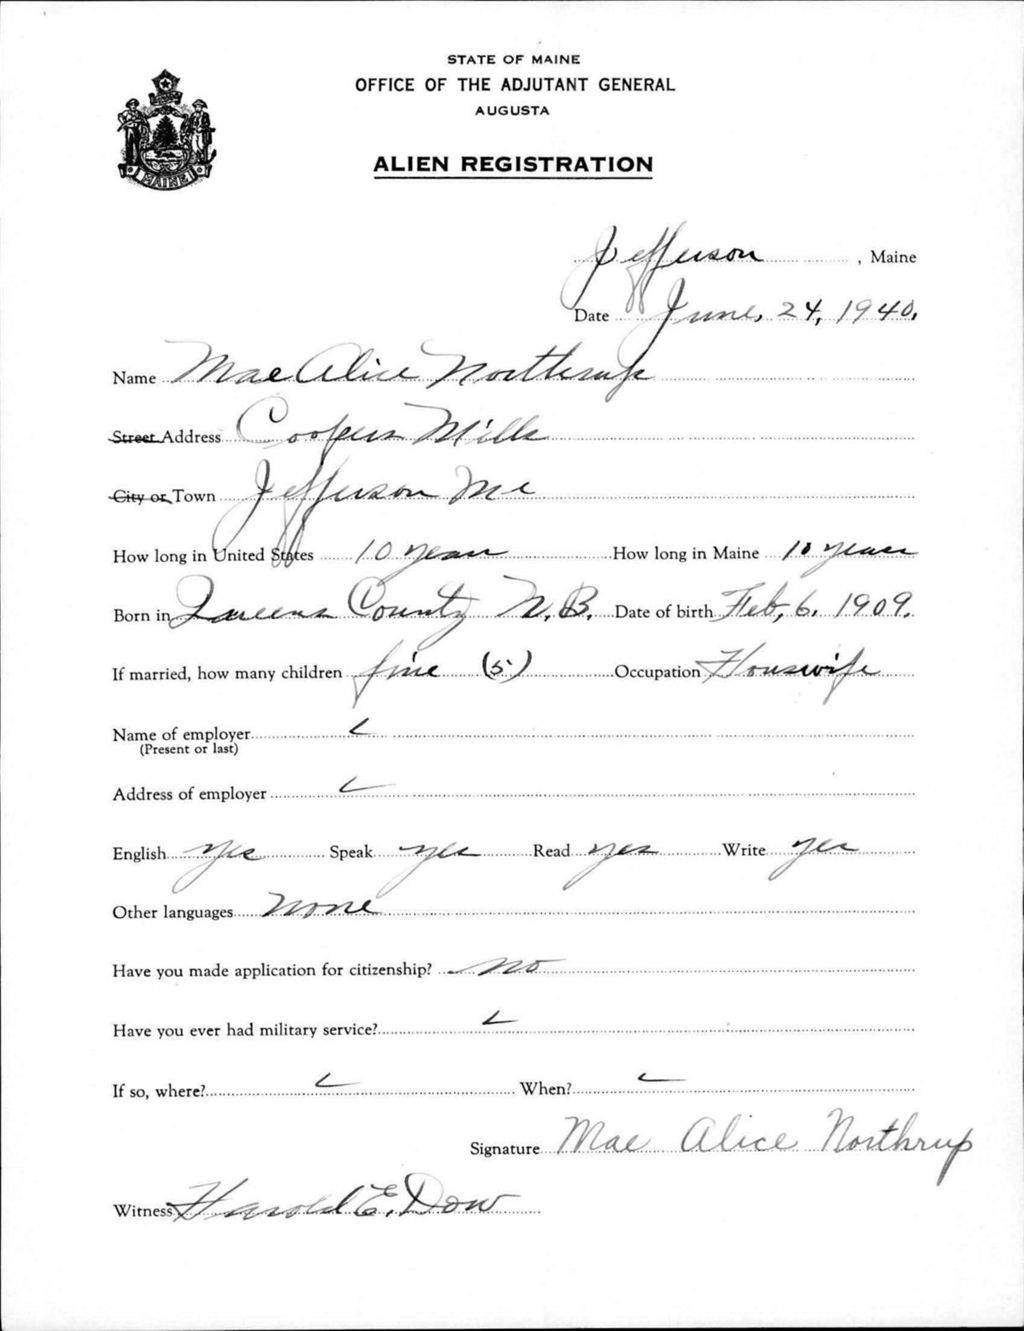 STATE OF MAINE
OFFICE OF THE ADJUTANT GENERAL
AUGUSTA
ALIEN REGISTRATION
MAINE
Jefferson, Maine
Date June, 24, 1940.
Name Mae Alice Northrup
Street Address Coopers Mills
City or Town Jefferson Me
How long in United States 10 years How long in Maine 10 years
Born in Queens County N.B. Date of birth Feb, 6. 1909.
If married, how many children five (5) Occupation Houswife
Name of employer
(Present or last)
Address of employer
English yes Speak yes Read yes Write yes
Other languages None
Have you made application for citizenship? No
Have you ever had military service?
If so, where? When?
Signature Mae Alice Northrup
Witness Harold E. Dow